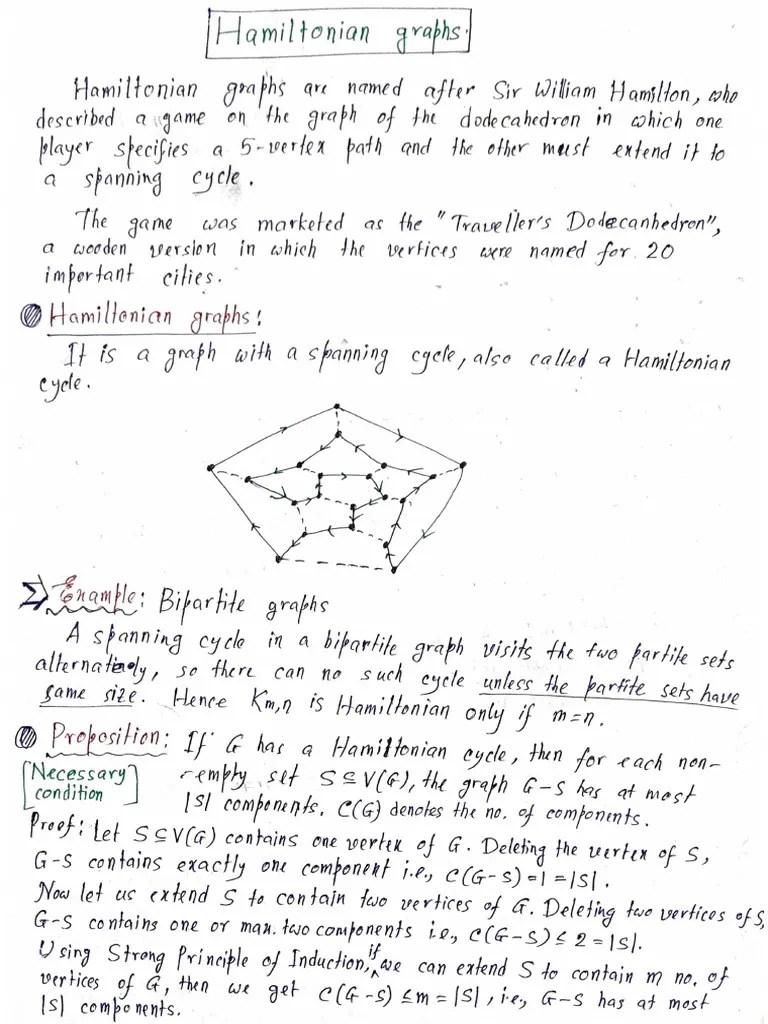 Hamiltonian graphs.
Hamiltonian graphs are named after Sir William Hamilton, who
described a game on the graph of the dodecahedron in which one
player specifies a 5-vertex path and the other must extend it to
a spanning cycle.
The game was marketed as the "Traveller's Dodecanhedron",
a wooden version in which the vertices were named for 20
important cities.
Hamiltonian graphs:
It is a graph with a spanning cycle, also called a Hamiltonian
cycle.
Example: Bipartite graphs
A spanning cycle in a bipartite graph visits the two partite sets
alternatively, so there can no such cycle unless the partite sets have
same size. Hence Km,n is Hamiltonian only if m=n.
Proposition: If G has a Hamiltonian cycle, then for each non-
[Necessary -empty set S⊆V(G), the graph G-S has at most
condition] |S| components. C(G) denotes the no. of components.
Proof: Let S⊆V(G) contains one vertex of G. Deleting the vertex of S,
G-S contains exactly one component i.e., C(G-S)=1=|S|.
Now let us extend S to contain two vertices of G. Deleting two vertices of S,
G-S contains one or max. two components i.e., C(G-S)≤2=|S|.
Using Strong Principle of Induction, if we can extend S to contain m no. of
vertices of G, then we get C(G-S)≤m=|S|, i.e., G-S has at most
|S| components.